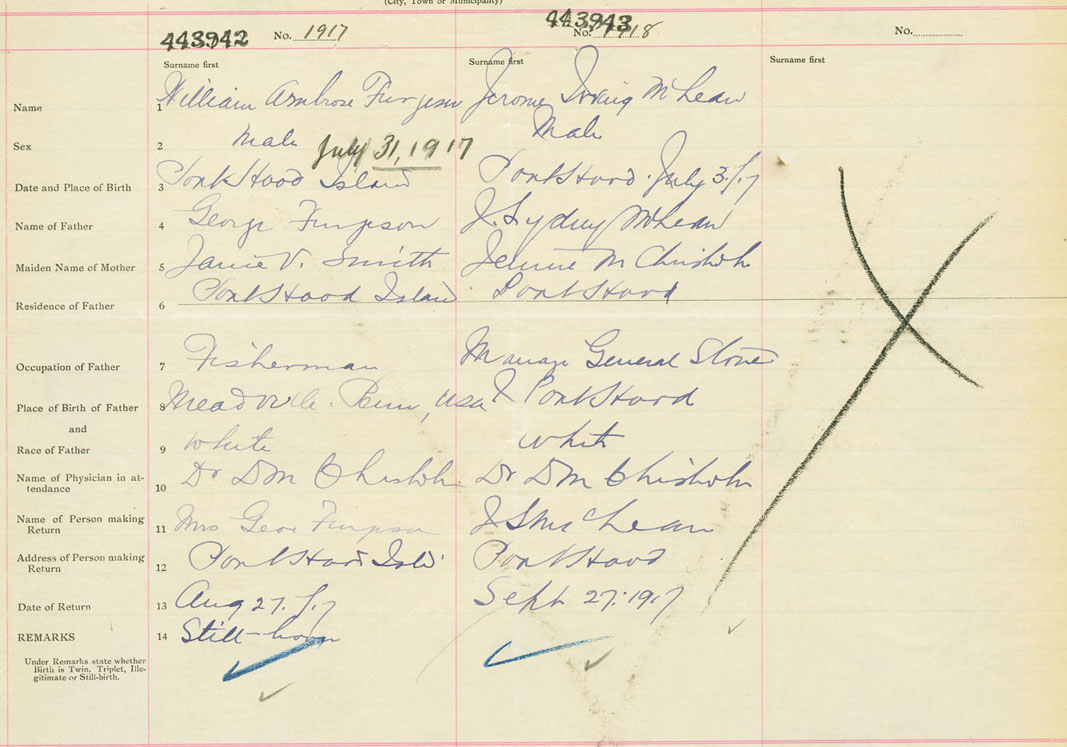 (City, Town or Municipality)
443942 No. 1917 443943 No. 1918 No.
Surname first Surname first Surname first
Name 1 William Ambrose Furgeson Jerome Irving McLean
Sex 2 Male Male
July 31, 1917
Date and Place of Birth 3 Port Hood Island Port Hood. July 3./17
Name of Father 4 George Furgeson J. Sydney McLean
Maiden Name of Mother 5 Janie V. Smith Jennie M Chisholm
Residence of Father 6 Port Hood Island Port Hood
Occupation of Father 7 Fisherman General Store
Place of Birth of Father 8 Meadville. Penn, USA Port Hood
and
Race of Father 9 White White
Name of Physician in at-
tendance 10 Dr DM Chisholm Dr DM Chisholm
Name of Person making
Return 11 Mrs Geo Furgeson J S McLean
Address of Person making
Return 12 Port Hood Isld Port Hood
Date of Return 13 Aug 27./17 Sept 27. 1917
REMARKS 14 Still-born
Under Remarks state whether
Birth is Twin, Triplet, Ille-
gitimate or Still-birth.